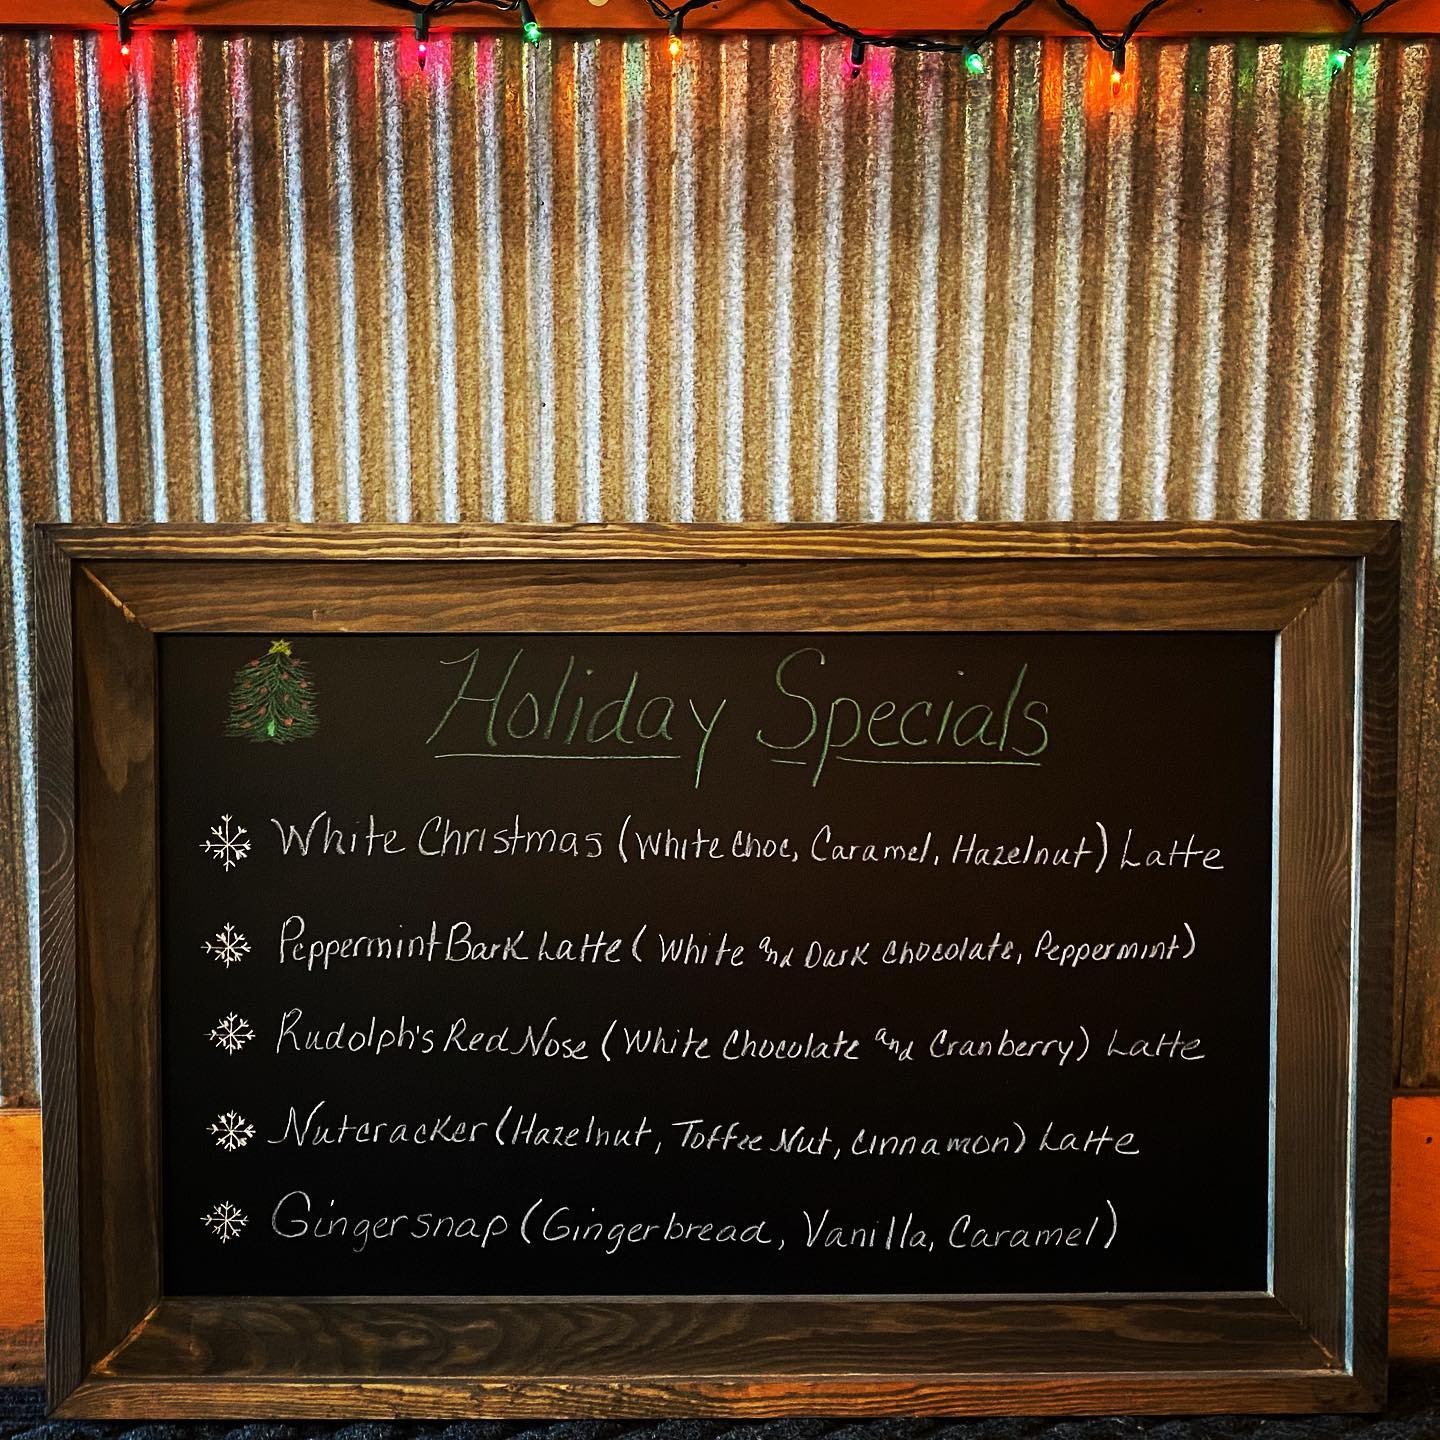 Holiday Specials
White Christmas (White Choc, Caramel, Hazelnut) Latte
Peppermint Bark Latte (White and Dark Chocolate, Peppermint)
Rudolph's Red Nose (White Chocolate and Cranberry) Latte
Nutcracker (Hazelnut, Toffee Nut, Cinnamon) Latte
Gingersnap (Gingerbread, Vanilla, Caramel)